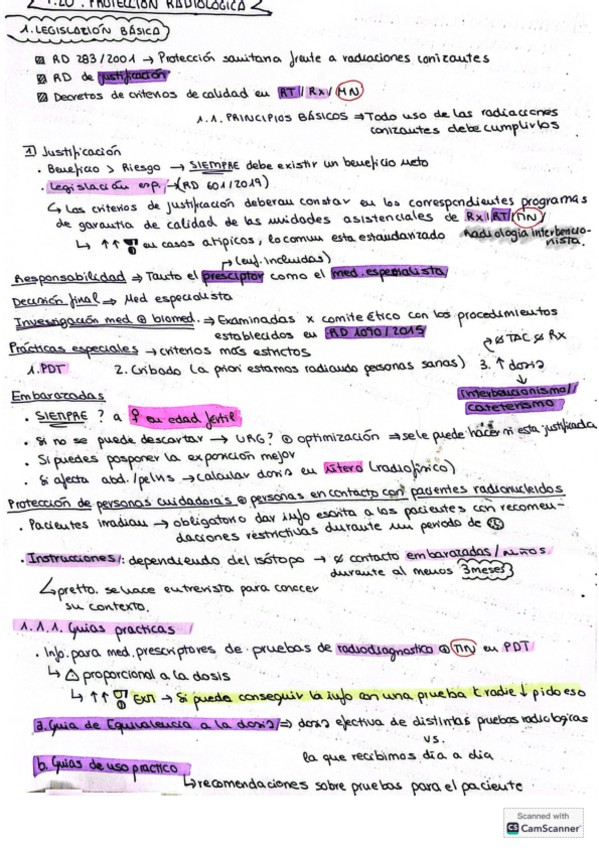 1.20. PROTECCIÓN RADIOLÓGICA
1. LEGISLACIÓN BÁSICA
RD 283/2001 → Protección sanitaria frente a radiaciones ionizantes
RD de justificación
Decretos de criterios de calidad en RT/Rx/MN
1.1. PRINCIPIOS BÁSICOS ⇒ Todo uso de las radiaciones
ionizantes debe cumplirlos
1) Justificación
. Beneficio > Riesgo → SIEMPRE debe existir un beneficio neto
. Legislación esp. → (RD 601/2019)
↳ Los criterios de justificación deberán constar en los correspondientes programas
de garantía de calidad de las unidades asistenciales de Rx/RT/MN
↳ ↑↑ en casos atípicos, lo común esta estandarizado Radiología intervencio-
nista.
(enf. incluidas)
Responsabilidad → Tanto el presciptor como el med. especialista
Decisión final → Med especialista
Investigación med. o biomed. → Examinadas x comité ético con los procedimientos
establecidos en RD 1090/2015
Prácticas especiales → criterios más estrictos
TAC Rx
1. PDT 2. Cribado (a priori estamos radiando personas sanas) 3. ↑ dosis
↓
intervencionismo/
cateterismo
Embarazadas
. SIEMPRE ? a ♀ en edad fértil
. Si no se puede descartar → URG? optimización ⇒ se le puede hacer si esta justificada
. Si puedes posponer la exposición mejor
. Si afecta abd./pelvis → calcular dosis en útero (radiofísico)
Protección de personas cuidadoras o personas en contacto con pacientes radionucleidos
. Pacientes irradian → obligatorio dar info escrita a los pacientes con recomen-
daciones restrictivas durante un periodo de
. Instrucciones/: dependiendo del isótopo → ∅ contacto embarazadas/niños
durante al menos 3 meses
↳ pretto. se hace entrevista para conocer
su contexto.
1.1.1. Guías practicas
. Info. para med. prescriptores de pruebas de radiodiagnostico o MN en PDT
↳ proporcional a la dosis
↳ ↑↑ EXN → Si puede conseguir la info con una prueba radie ↓ pido eso
a. Guia de Equivalencia a la dosis ⇒ dosis efectiva de distintas pruebas radiologicas
vs.
la que recibimos día a día
b. Guias de uso practico
↳ recomendaciones sobre pruebas para el paciente
Scanned with
CS CamScanner